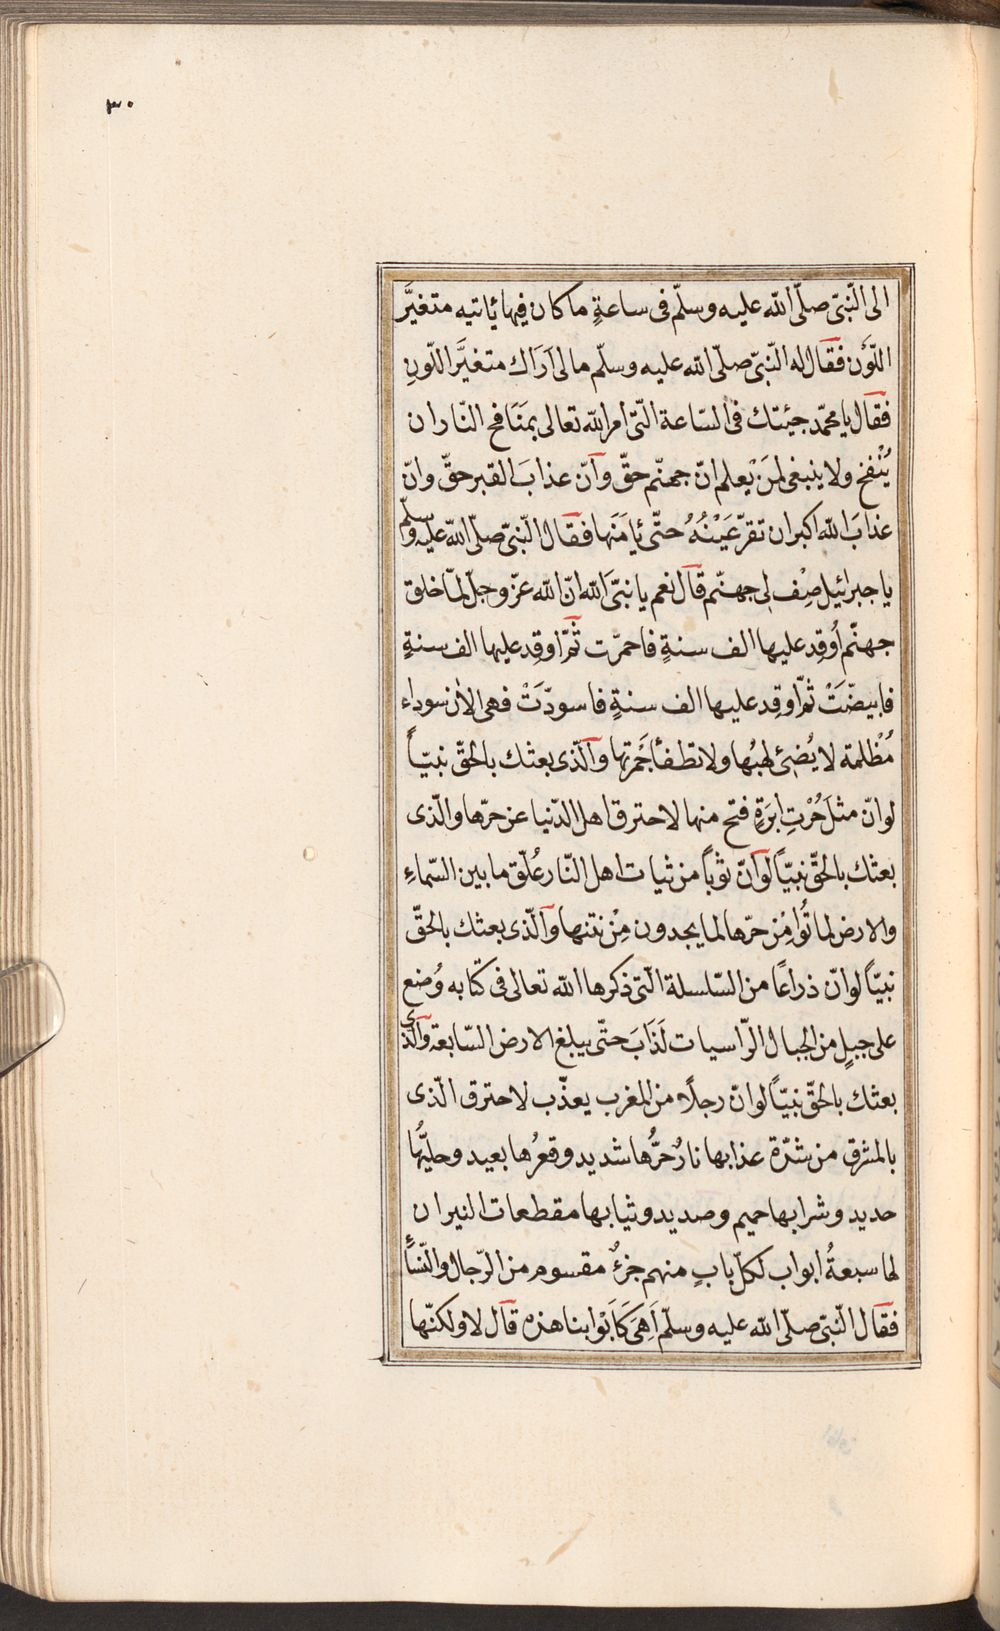 ٣٠
الى النّبىّ صلّى الله عليه وسلّم فى ساعةٍ ما كان فِيها ئاتيه متغيَّر
اللّوْن فقال له النّبىّ صلّى الله عليه وسلّم مالى اَرَاك متغيَّر اللّونِ
فقال يا محمّد جئتك فى السّاعة الّتى أمر الله تعالى بمَنَافخ النّار ان
يُنْفخ ولا ينبغى لمَنْ يَعلم انّ جهنّم حقّ وانّ عذابَ القبر حقّ وانّ
عذابَ الله اكبر ان تقرّ عَيْنُهُ حتّى ئامَنَها فقال النّبىّ صلّى الله عليه وسلّم
يا جبرائيل صِف لِى جهنّم قال نعم يا نبىّ الله انّ الله عزّ وجلّ لمّا خلق
جهنّم اُوقِد عليها الف سنةٍ فاحمرّت ثمّ اوقِد عليها الف سنةٍ
فابيضّتْ ثمّ اوقِد عليها الف سنةٍ فاسودّتْ فهى الاٰن سوداء
مُظْلمة لا يُضِئ لهبُها ولا تطفأ جَمرتها والّذى بعثك بالحقّ نبيّاً
لو انّ مثلَ خُرْتِ ابَرةٍ فتح منها لاحترق اهل الدّنيا عن حرّها والّذى
بعثك بالحقّ نبيّاً لو انّ ثوباً من ثيات اهل النّار عُلّق ما بين السّماءِ
والارض لماتُوا مِن حرّها لما يجدون مِنْ نتنها والّذى بعثك بالحقّ
نبيّاً لو انّ ذراعًا من السّلسلة الّتى ذكرها الله تعالى فى كتابه وُضع
على جبلٍ من الجبال الرّاسيات لَذَابَ حتّى يبلغ الارض السّابعة والّذى
بعثك بالحقّ نبيّاً لو انّ رجلًا من المغرب يعذّب لاحترق الّذى
بالمشرق من شدّة عذابها نارٌ حرُّها شديد وقعرُها بعيد وحليُّها
حديد وشرابها حميم وصديد وثيابها مقطعات النيران
لها سبعةُ ابواب لكلّ بابٍ منهم جزءٌ مقسوم من الرّجال والنّسأِ
فقال النّبىّ صلّى الله عليه وسلّم اَهِىَ كَاَبْوابنا هذه قال لا ولكنّها